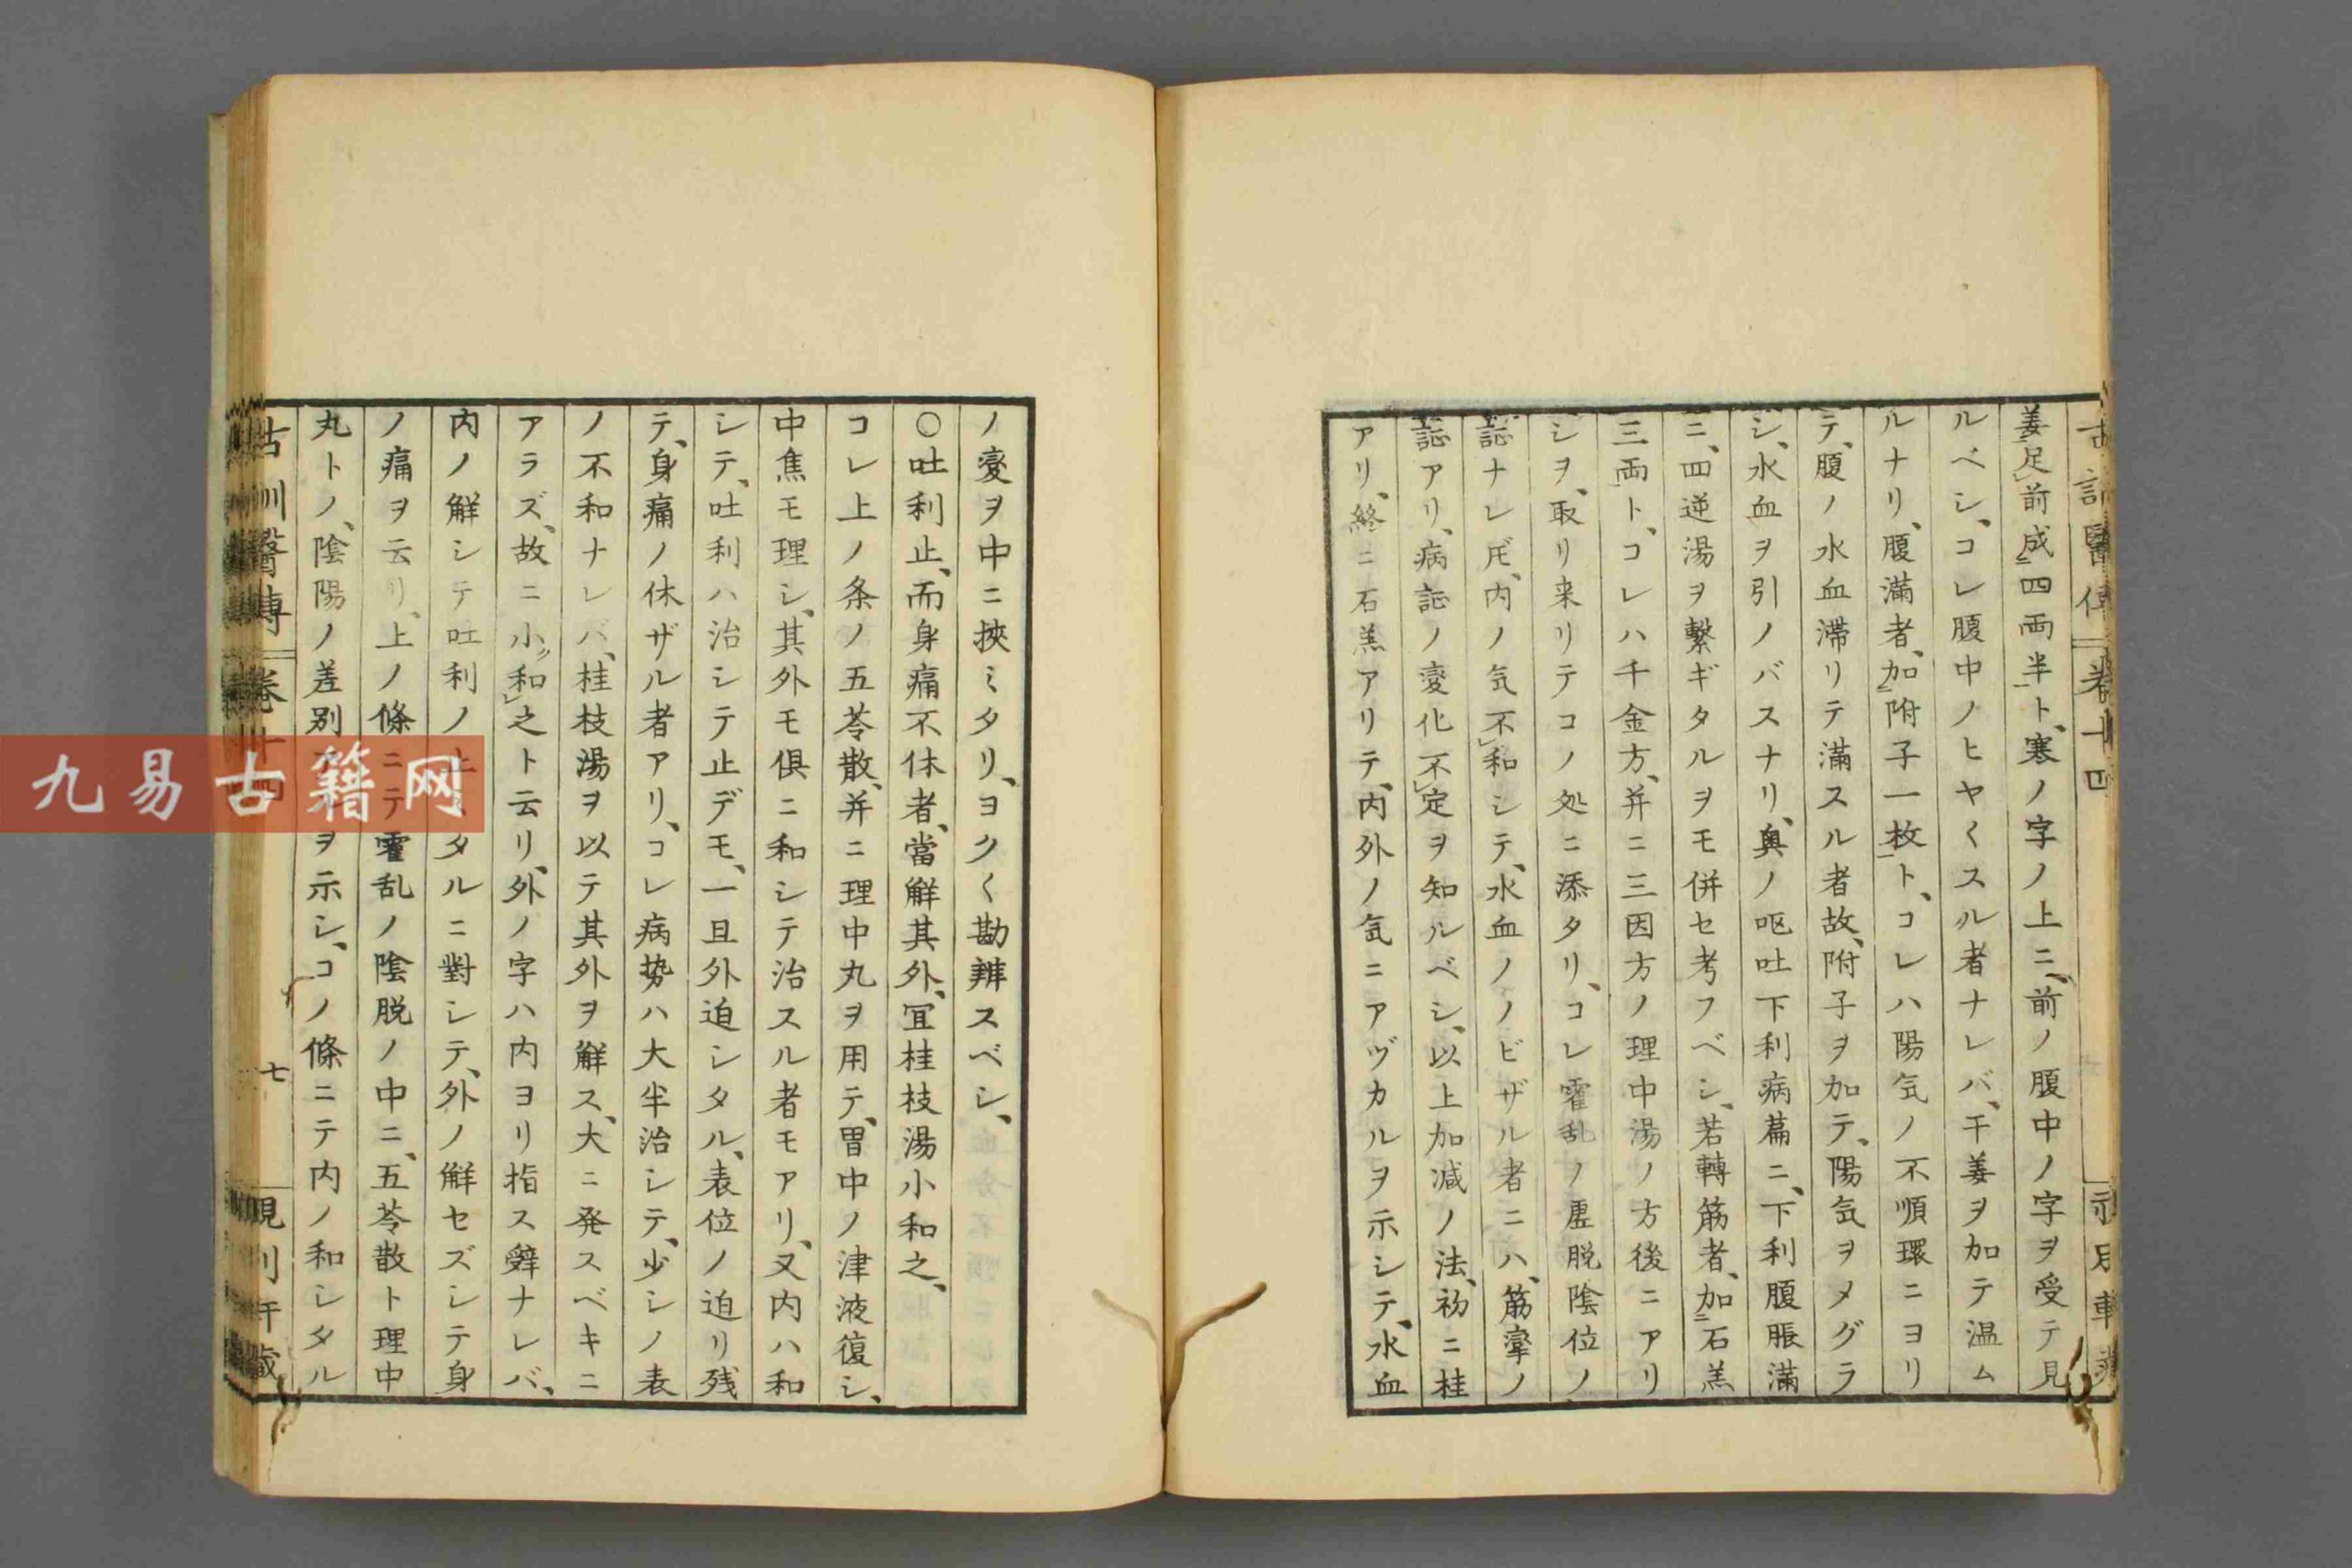 姜足前成四両半ト、寒ノ字ノ上ニ、前ノ腹中ノ字ヲ受テ見
ルベシ、コレ腹中ノヒヤくスル者ナレバ、干姜ヲ加テ温ム
ルナリ、腹滿者、加附子一枚ト、コレハ陽気ノ不順環ニヨリ
テ、腹ノ水血滯リテ滿スル者故、附子ヲ加テ、陽気ヲメグラ
シ、水血ヲ引ノバスナリ、奥ノ呕吐下利病篇ニ、下利腹脹滿
ニ、四逆湯ヲ繋ギタルヲモ併セ考フベシ、若轉筋者、加石羔
三両ト、コレハ千金方、并ニ三因方ノ理中湯ノ方後ニアリ
シヲ、取リ来リテコノ処ニ添タリ、コレ霍乱ノ虚脱陰位ノ
証ナレ𪜈、内ノ気不和シテ、水血ノノビザル者ニハ、筋攣ノ
証アリ、病証ノ変化不定ヲ知ルベシ、以上加減ノ法、初ニ桂
アリ、終ニ石羔アリテ、内外ノ気ニアヅカルヲ示シテ、水血
ノ変ヲ中ニ挾ミタリ、ヨクく勘辨スベシ、
○吐利止、而身痛不休者、當解其外、宜桂枝湯小和之、
コレ上ノ条ノ五苓散、并ニ理中丸ヲ用テ、胃中ノ津液復シ、
中焦モ理シ、其外モ俱ニ和シテ治スル者モアリ、又内ハ和
シテ、吐利ハ治シテ止デモ、一旦外迫シタル、表位ノ迫リ残
テ、身痛ノ休ザル者アリ、コレ病势ハ大半治シテ、少シノ表
ノ不和ナレバ、桂枝湯ヲ以テ其外ヲ解ス、大ニ発スベキニ
アラズ、故ニ小和之ト云リ、外ノ字ハ内ヨリ指ス辭ナレバ、
内ノ解シテ吐利ノ止タルニ對シテ、外ノ解セズシテ身
ノ痛ヲ云リ、上ノ條ニテ霍乱ノ陰脱ノ中ニ、五苓散ト理中
丸トノ、陰陽ノ差别ヲ示シ、コノ條ニテ内ノ和シタル
古訓醫傳 卷十四 七
九易古籍网